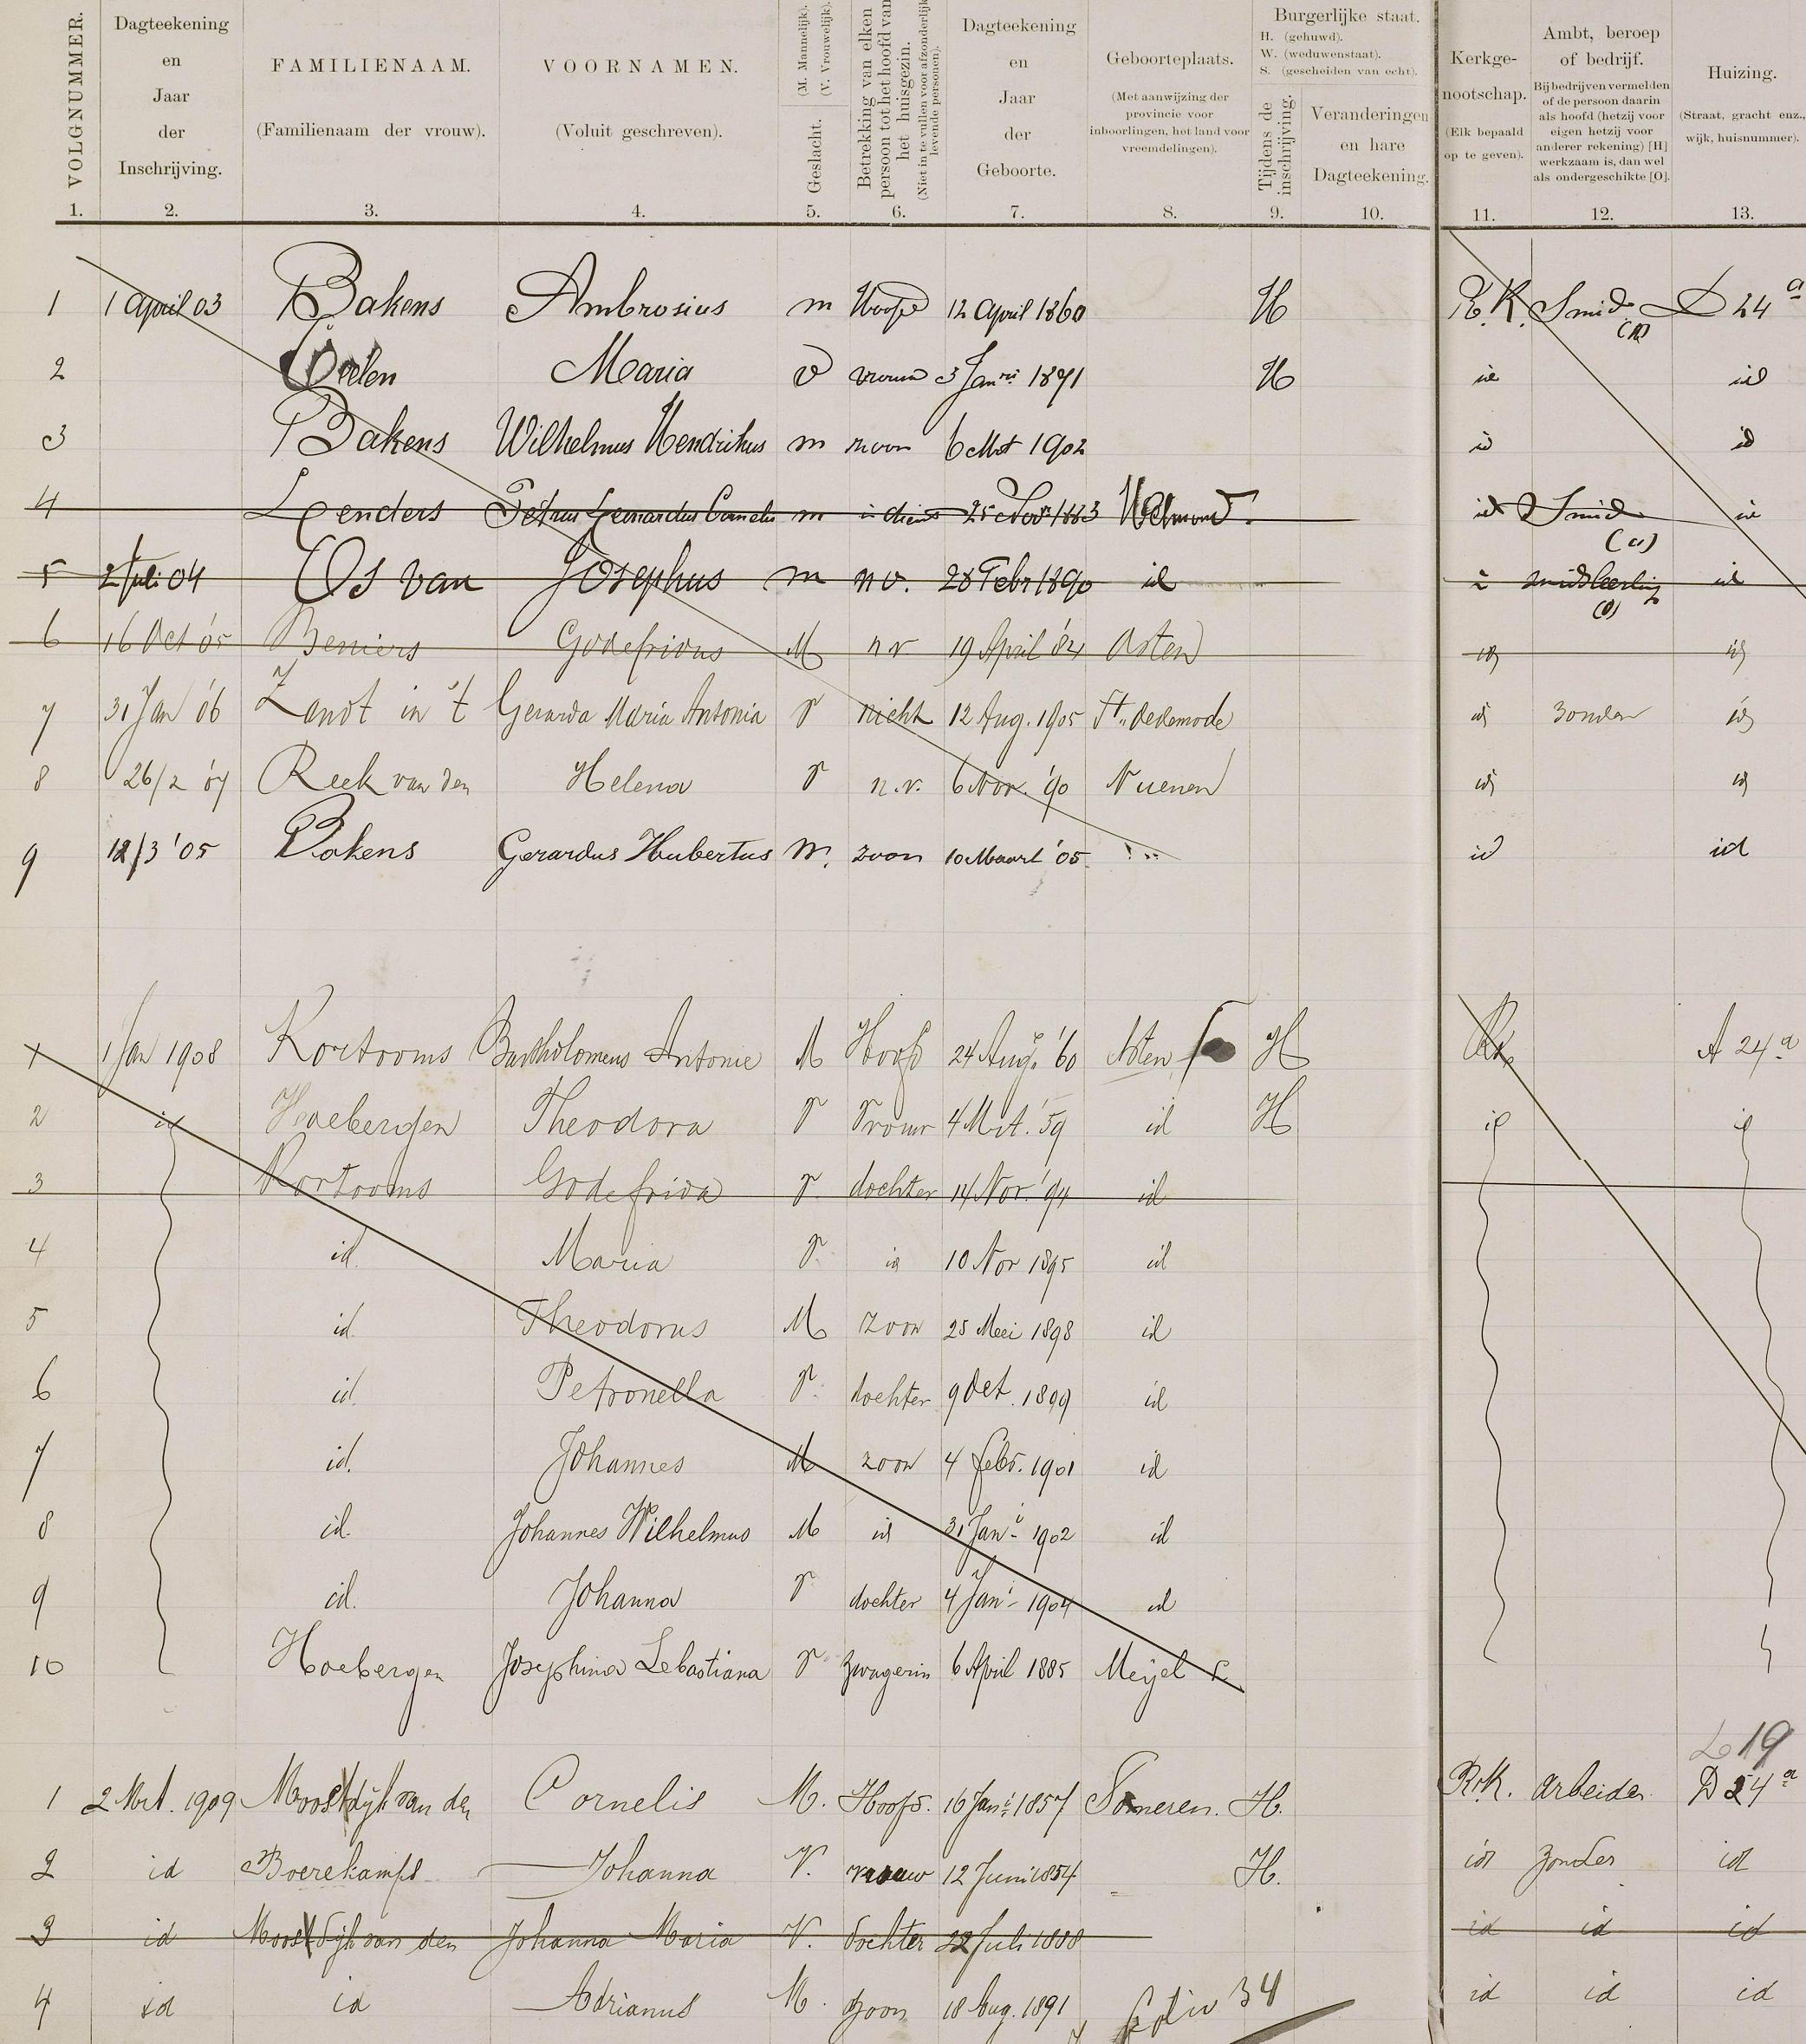 VOLGNUMMER. Dagteekening en Jaar der Inschrijving. FAMILIENAAM. (Familienaam der vrouw). VOORNAMEN. (Voluit geschreven). Geslacht. (M. Mannelijk). (V. Vrouwelijk). Betrekking van elken persoon tot het hoofd van het huisgezin. (Niet in te vullen voor afzonderlijk levende personen). Dagteekening en Jaar der Geboorte. Geboorteplaats. (Met aanwijzing der provincie voor inboorlingen, het land voor vreemdelingen). Burgerlijke staat. H. (gehuwd). W. (weduwenstaat). S. (gescheiden van echt). Tijdens de inschrijving. Veranderingen en hare Dagteekening. Kerkge-nootschap. (Elk bepaald op te geven). Ambt, beroep of bedrijf. Bij bedrijven vermelden of de persoon daarin als hoofd (hetzij voor eigen hetzij voor anderer rekening) [H] werkzaam is, dan wel als ondergeschikte [O]. Huizing. (Straat, gracht enz., wijk, huisnummer).
1. 2. 3. 4. 5. 6. 7. 8. 9. 10. 11. 12. 13.
1 1 April 03 Bakens Ambrosius m Hoofd 12 April 1860 H R.K. Smid (H) D 24 a
2 Maria v vrouw 3 Janri 1871 H id id
3 Bakens Wilhelmus Hendrikus m zoon 6 Mrt 1902 id id
4 Lenders Petrus Leonardus Cornelis m in dienst 25 Novr 1883 Helmond. id Smid (O) id
5 2 Juli 04 Os van Josephus m nv. 28 Febr 1890 id id smidsleerling (O) id
6 16 Oct '05 Beniers Godefridus M nv 19 April '84 Asten id id
7 31 Jan '06 Zandt in 't Gerarda Maria Antonia V nicht 12 Aug. 1905 St. Oedenrode id zonder id
8 26/2 '07 Reek van den Helena V n.v. 6 Nov. '90 Nuenen id id
9 12/3 '05 Bakens Gerardus Hubertus M. zoon 10 Maart '05 id id
1 1 Jan 1908 Kortooms Bartholomeus Antonie M Hoofd 24 Aug. '60 Asten H RK A 24 a
2 id Hoebergen Theodora V Vrouw 4 Mrt. '59 id H id id
3 Kortooms Godefrida V dochter 14 Nov. '94 id
4 id. Maria V id 10 Nov 1895 id
5 id. Theodorus M zoon 25 Mei 1898 id
6 id. Petronella V dochter 9 Oct. 1899 id
7 id. Johannes M zoon 4 febr. 1901 id
8 id. Johannes Wilhelmus M id 31 Jani 1902 id
9 id. Johanna V dochter 4 Jani 1904 id
10 Hoebergen Josephina Sebastiana V zwagerin 6 April 1885 Meijel L
19
1 2 Mrt. 1909 Moostdijk van den Cornelis M. Hoofd. 16 Jani 1857 Someren. H. R.K. arbeider D 24 a
2 id Boerekamps Johanna V. vrouw 12 Juni 1854 H. id zonder id
3 id Moostdijk van den Johanna Maria V. dochter 22 Juli 1888 id id id
4 id id Adrianus M. zoon 18 Aug. 1891 folio 34 id id id